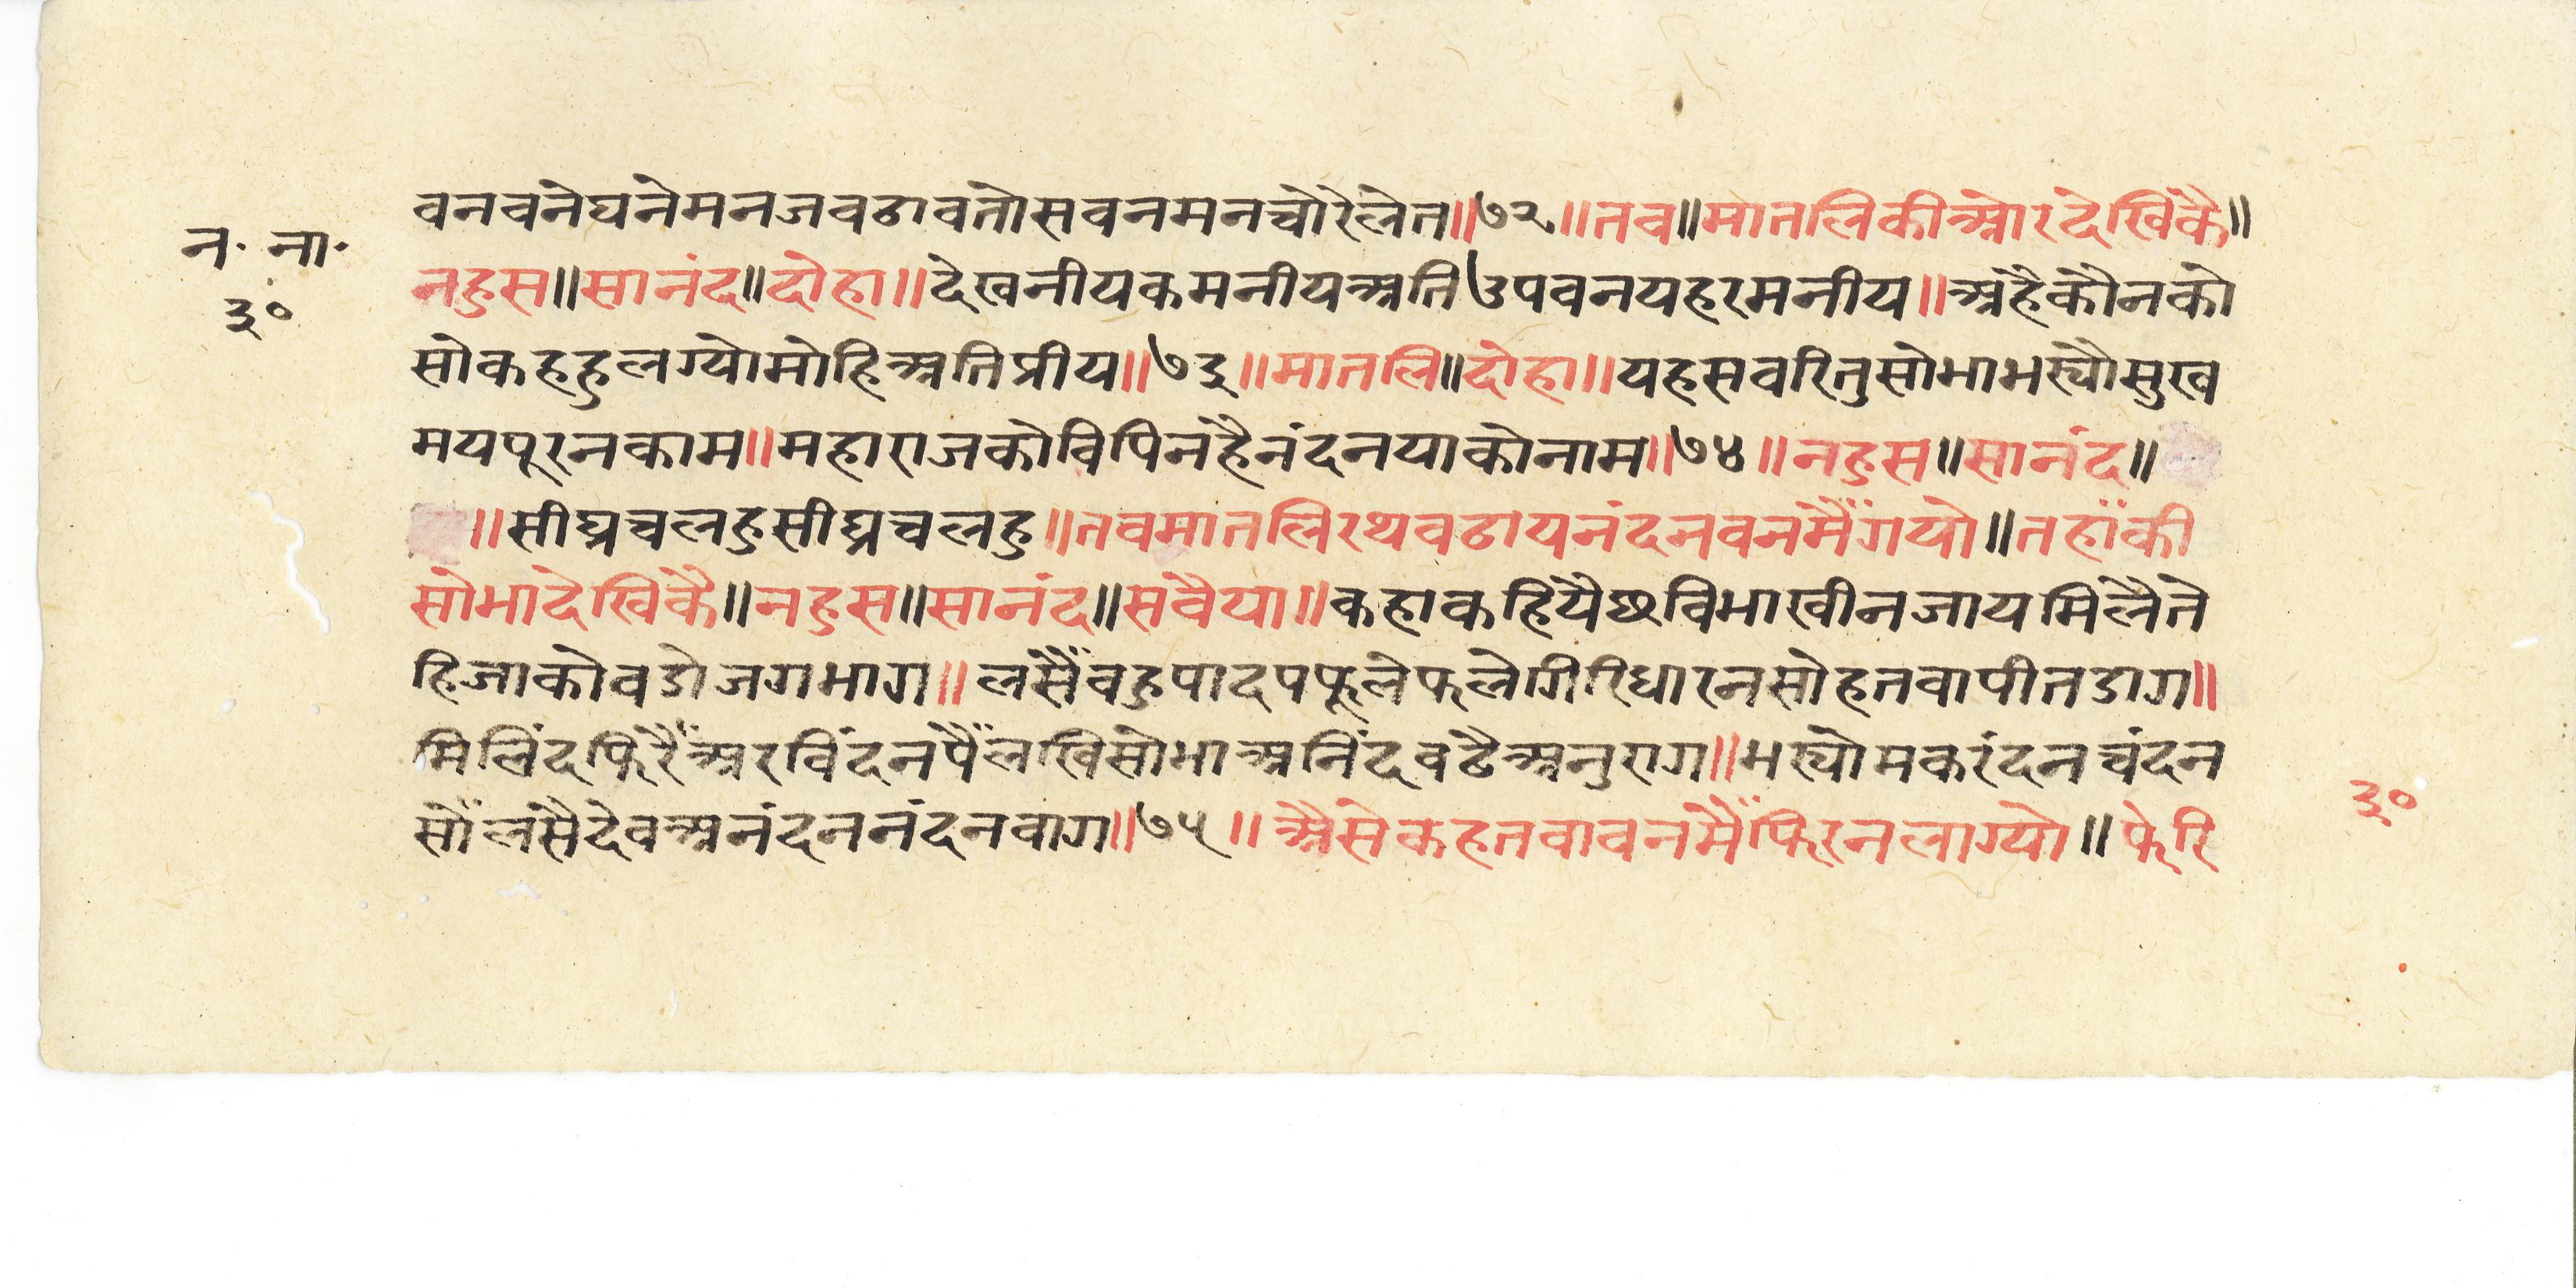 वनवनेघनेमनजवढावतोसवनमनचोरेलेत॥७२॥तव॥मातलिकीओरदेखिकै॥
न॰ ना॰
नहुस॥सानंद॥दोहा॥देखनीयकमनीयअतिउपवनयहरमनीय॥अहैकौनको
३०
सोकहहुलग्योमोहिअतिप्रीय॥७३॥मातलि॥दोहा॥यहसवरितुसोभाभस्यौसुख
मयपूरनकाम॥महाराजकोविपिनहैनंदनयाकोनाम॥७४॥नहुस॥सानंद॥
॥सीघ्रचलहुसीघ्रचलहु॥तवमातलिरथवढायनंदनवनमैँगयो॥तहाँकी
सोभादेखिकै॥नहुस॥सानंद॥सवैया॥कहाकहियैछविभाखीनजायमिलैते
हिजाकोवडोजगभाग॥लसैँवहुपादपफूलेफलेगिरिधारनसोहतवापीतडाग॥
मिलिंदफिरैँअरविंदनपैँलखिसोभाअनिंदवढैअनुराग॥भस्योमकरंदनचंदन
सोँलसैदेवअनंदननंदनवाग॥७५॥अैसेकहतवावनमैँफिरनलाग्यो॥फेरि
३०